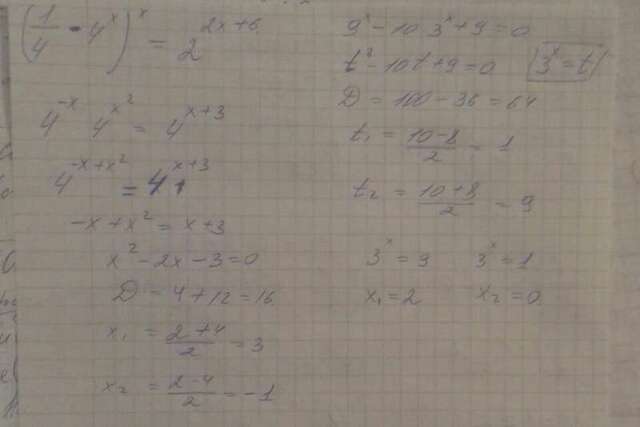 (1/4 · 4^x)^x = 2^(2x+6)
4^(-x) 4^(x^2) = 4^(x+3)
4^(-x+x^2) = 4^(x+3)
-x+x^2 = x+3
x^2-2x-3=0
D = 4+12=16
x₁ = (2+4)/2 = 3
x₂ = (2-4)/2 = -1
9^x - 10 3^x + 9 = 0
t^2 - 10t + 9 = 0 3^x = t
D = 100 - 36 = 64
t₁ = (10-8)/2 = 1
t₂ = (10+8)/2 = 9
3^x = 9 3^x = 1
x₁ = 2 x₂ = 0